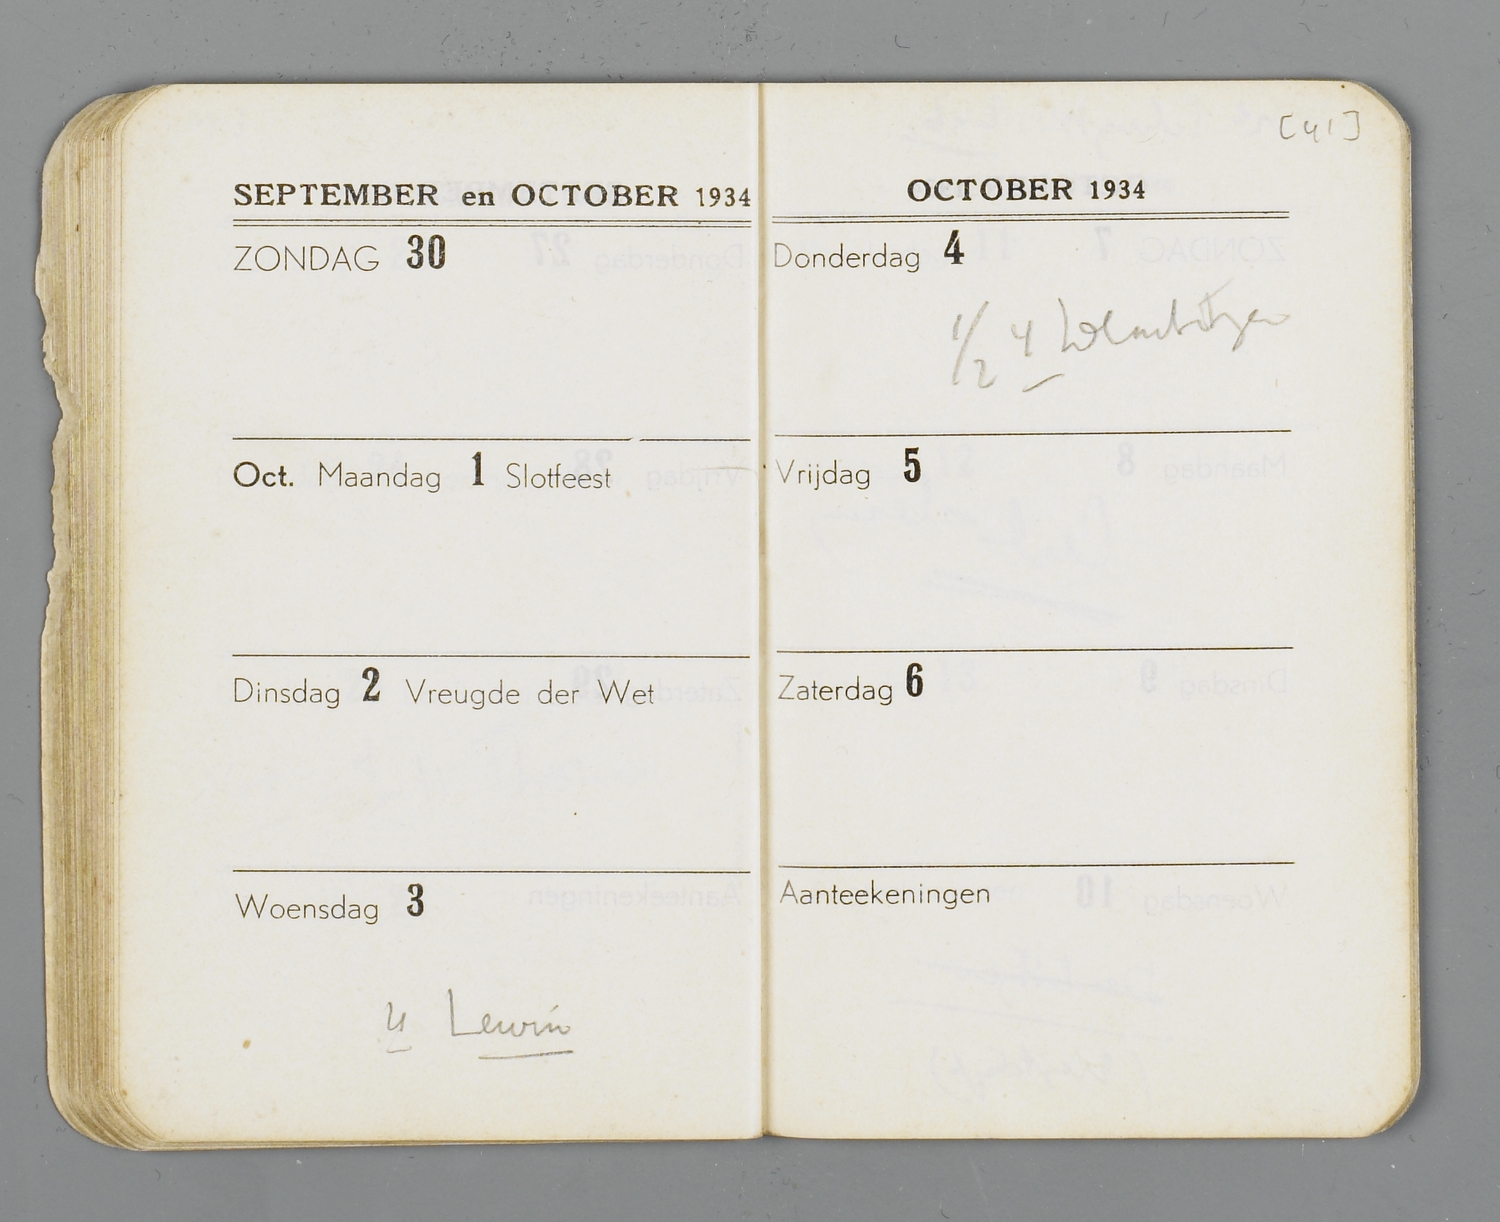 SEPTEMBER en OCTOBER 1934
ZONDAG 30
Oct. Maandag 1 Slotfeest
Dinsdag 2 Vreugde der Wet
Woensdag 3
4 Lewin
[41]
OCTOBER 1934
Donderdag 4
1/2 4
Vrijdag 5
Zaterdag 6
Aanteekeningen